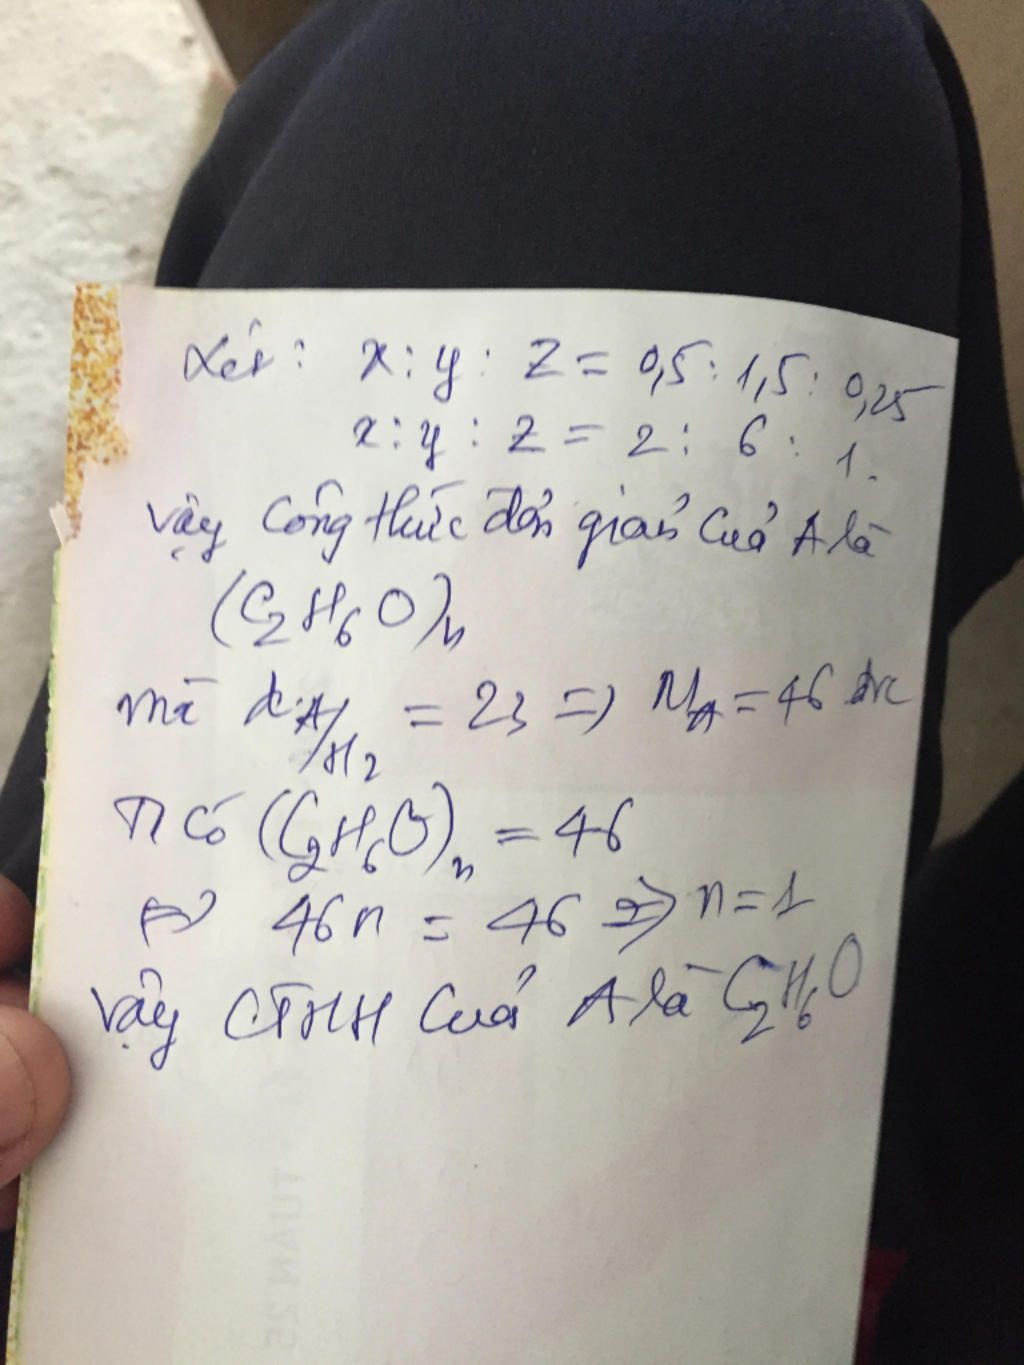 Xét: x : y : z = 0,5 : 1,5 : 0,25
x : y : z = 2 : 6 : 1.
vậy công thức đơn giản của A là
(C₂H₆O)ₙ
mà d A/H₂ = 23 => M_A = 46 đvc
Ta có (C₂H₆O)ₙ = 46
<=> 46n = 46 => n = 1
vậy CTHH của A là C₂H₆O
TUẦN 25